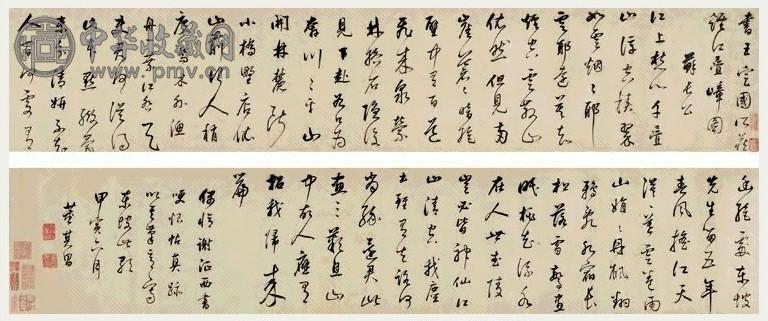 中华收藏网
www.pmv.cn
書王定國所藏
煙江疊嶂圖
蘇長公
江上愁心千疊
山浮空積翠
如雲煙山耶
雲耶遠莫知
煙空雲散山
依然但見兩
崖蒼蒼暗絕
谷中有百道
飛來泉縈
林絡石隱復
見下赴谷口為
奔川川平山
開林麓斷
小橋野店依
山前行人稍
度喬木外漁
舟一葉江吞天
使君何從得
此本點綴毫
末分清妍不知
人間何處有
幽絕處東坡
先生留五年
春風搖江天
漠漠暮雲卷雨
山娟娟丹楓翻
鴉伴水宿長
松落雪驚晝
眠桃花流水
在人世武陵
豈必皆神仙江
山清空我塵
土雖有去路尋
無緣還君此
畫三歎息山
中故人應有
招我歸來
篇
偶臨謝征西書
帖真跡
以其筆意寫
東坡此歌
甲寅六月
董其昌